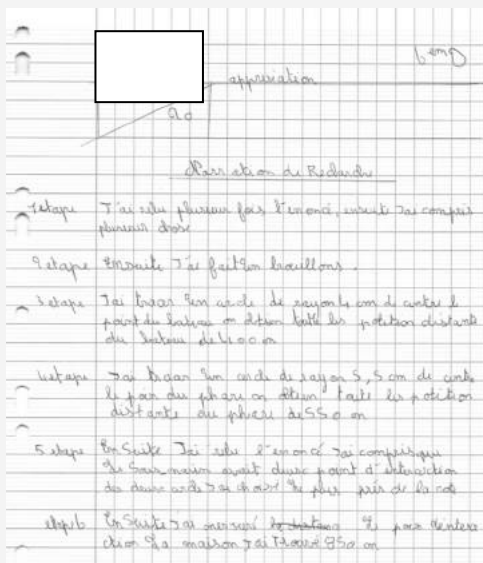 6em D
appreciation
20
Narration de Recherche
1 etape J'ai relu plusieur fois l'enoncé, ensuite J'ai compris
plusieurs chose
2 etape Ensuite J'ai fait un brouillons.
3 etape J'ai tracer un cercle de rayon 4 cm de centre le
point du bateau on obtien toute les position distante
du bateau de 400 m
4 etape J'ai tracer un cercle de rayon 5,5 cm de centre
le poin du phare on obtien toute les position
distante du phare de 550 m
5 etape Ensuite J'ai relu l'enoncé J'ai compris que
le sous marin avait deux point d'interaction
des deux cercle J'ai choisi le plus près de la cote
etape 6 Ensuite J'ai mesuré le poin d'intere
ction la maison J'ai trouvé 850 m